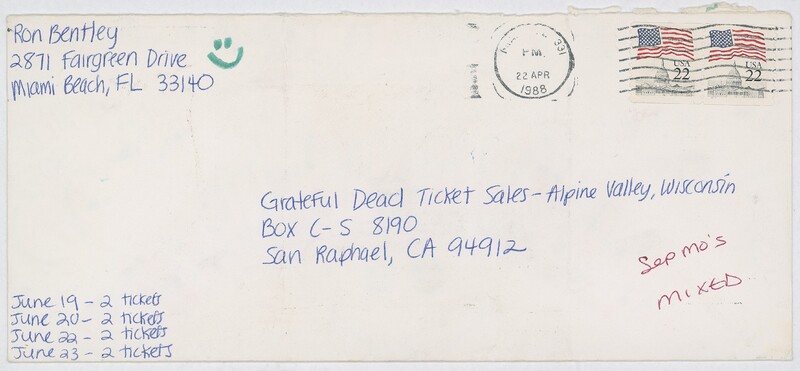 Ron Bentley
2871 Fairgreen Drive
Miami Beach, FL 33140
PM
22 APR
1988
331
USA
22
USA
22
Grateful Dead Ticket Sales - Alpine Valley, Wisconsin
Box C-S 8190
San Raphael, CA 94912
Sep mo's
MIXED
June 19 - 2 tickets
June 20 - 2 tickets
June 22 - 2 tickets
June 23 - 2 tickets